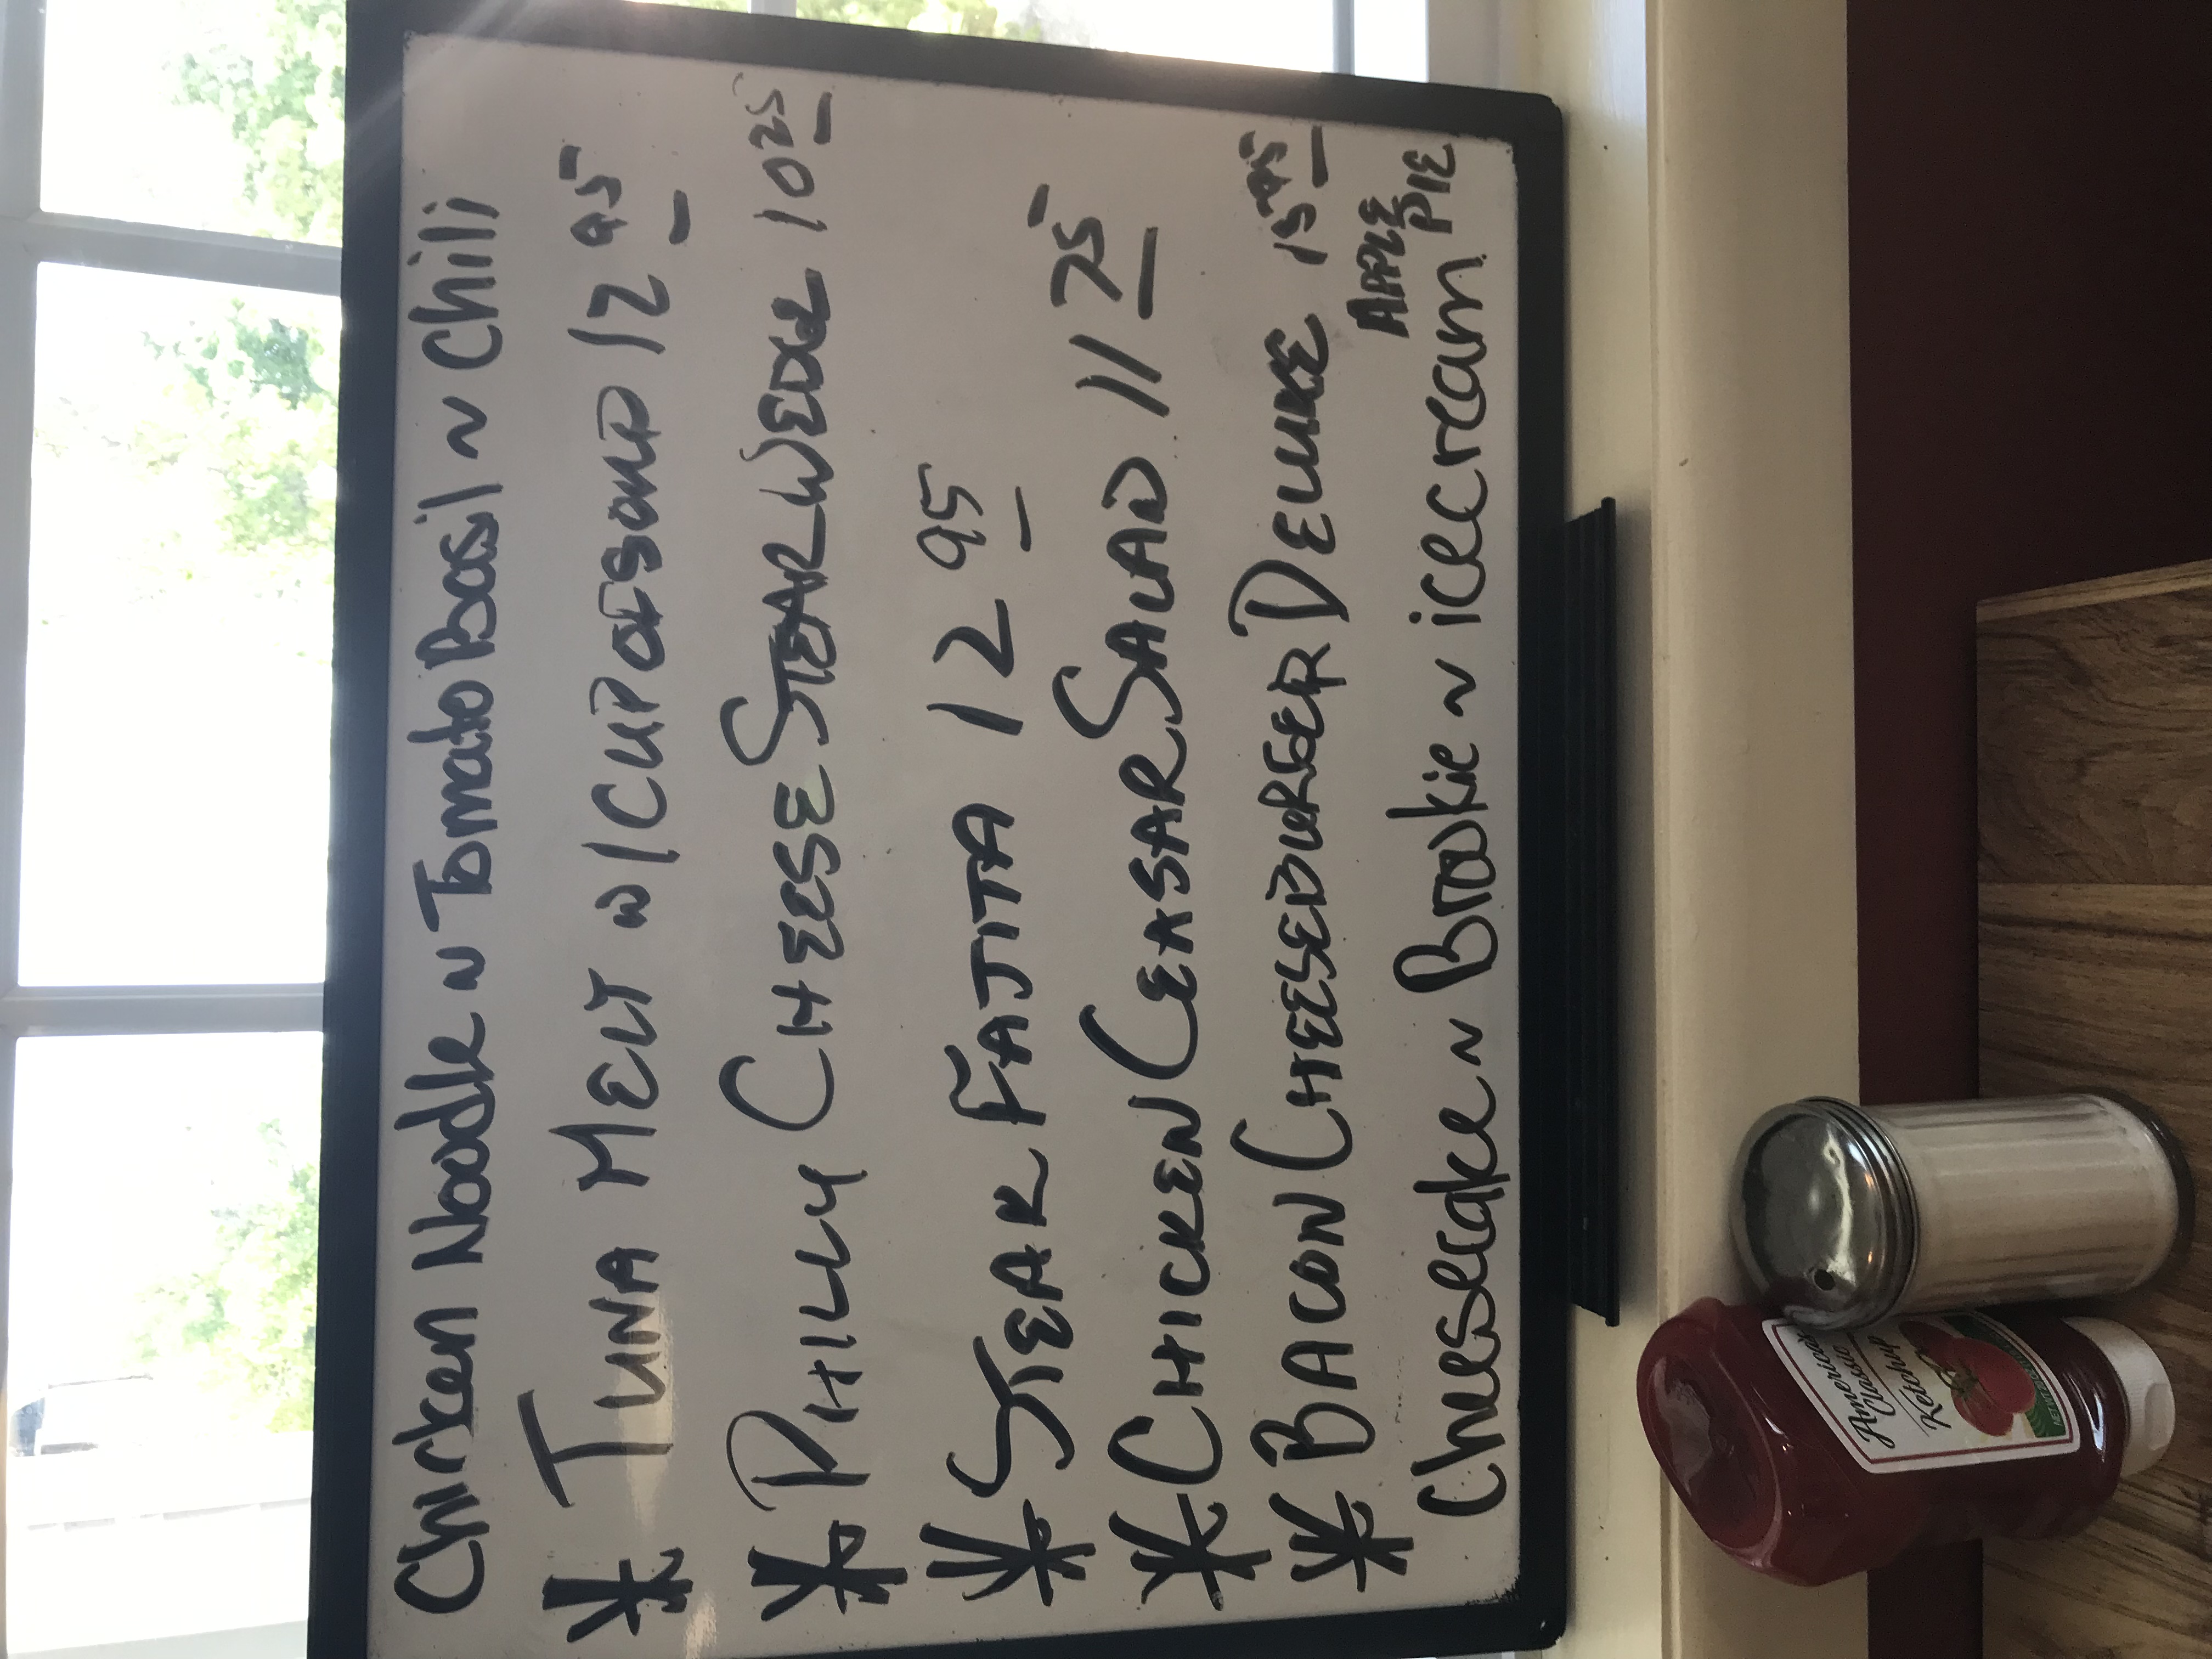 Chicken Noodle ~ Tomato Basil ~ Chili
* TUNA MELT w/ CUP OF SOUP 12 95
* PHILLY CHEESE STEAK WEDGE 10 25
* STEAK FAJITA 12 95
* CHICKEN CEASAR SALAD 11 75
* BACON CHEESEBURGER DELUXE 15 95
APPLE PIE
Cheesecake ~ Brookie ~ icecream
American
Classic
Ketchup